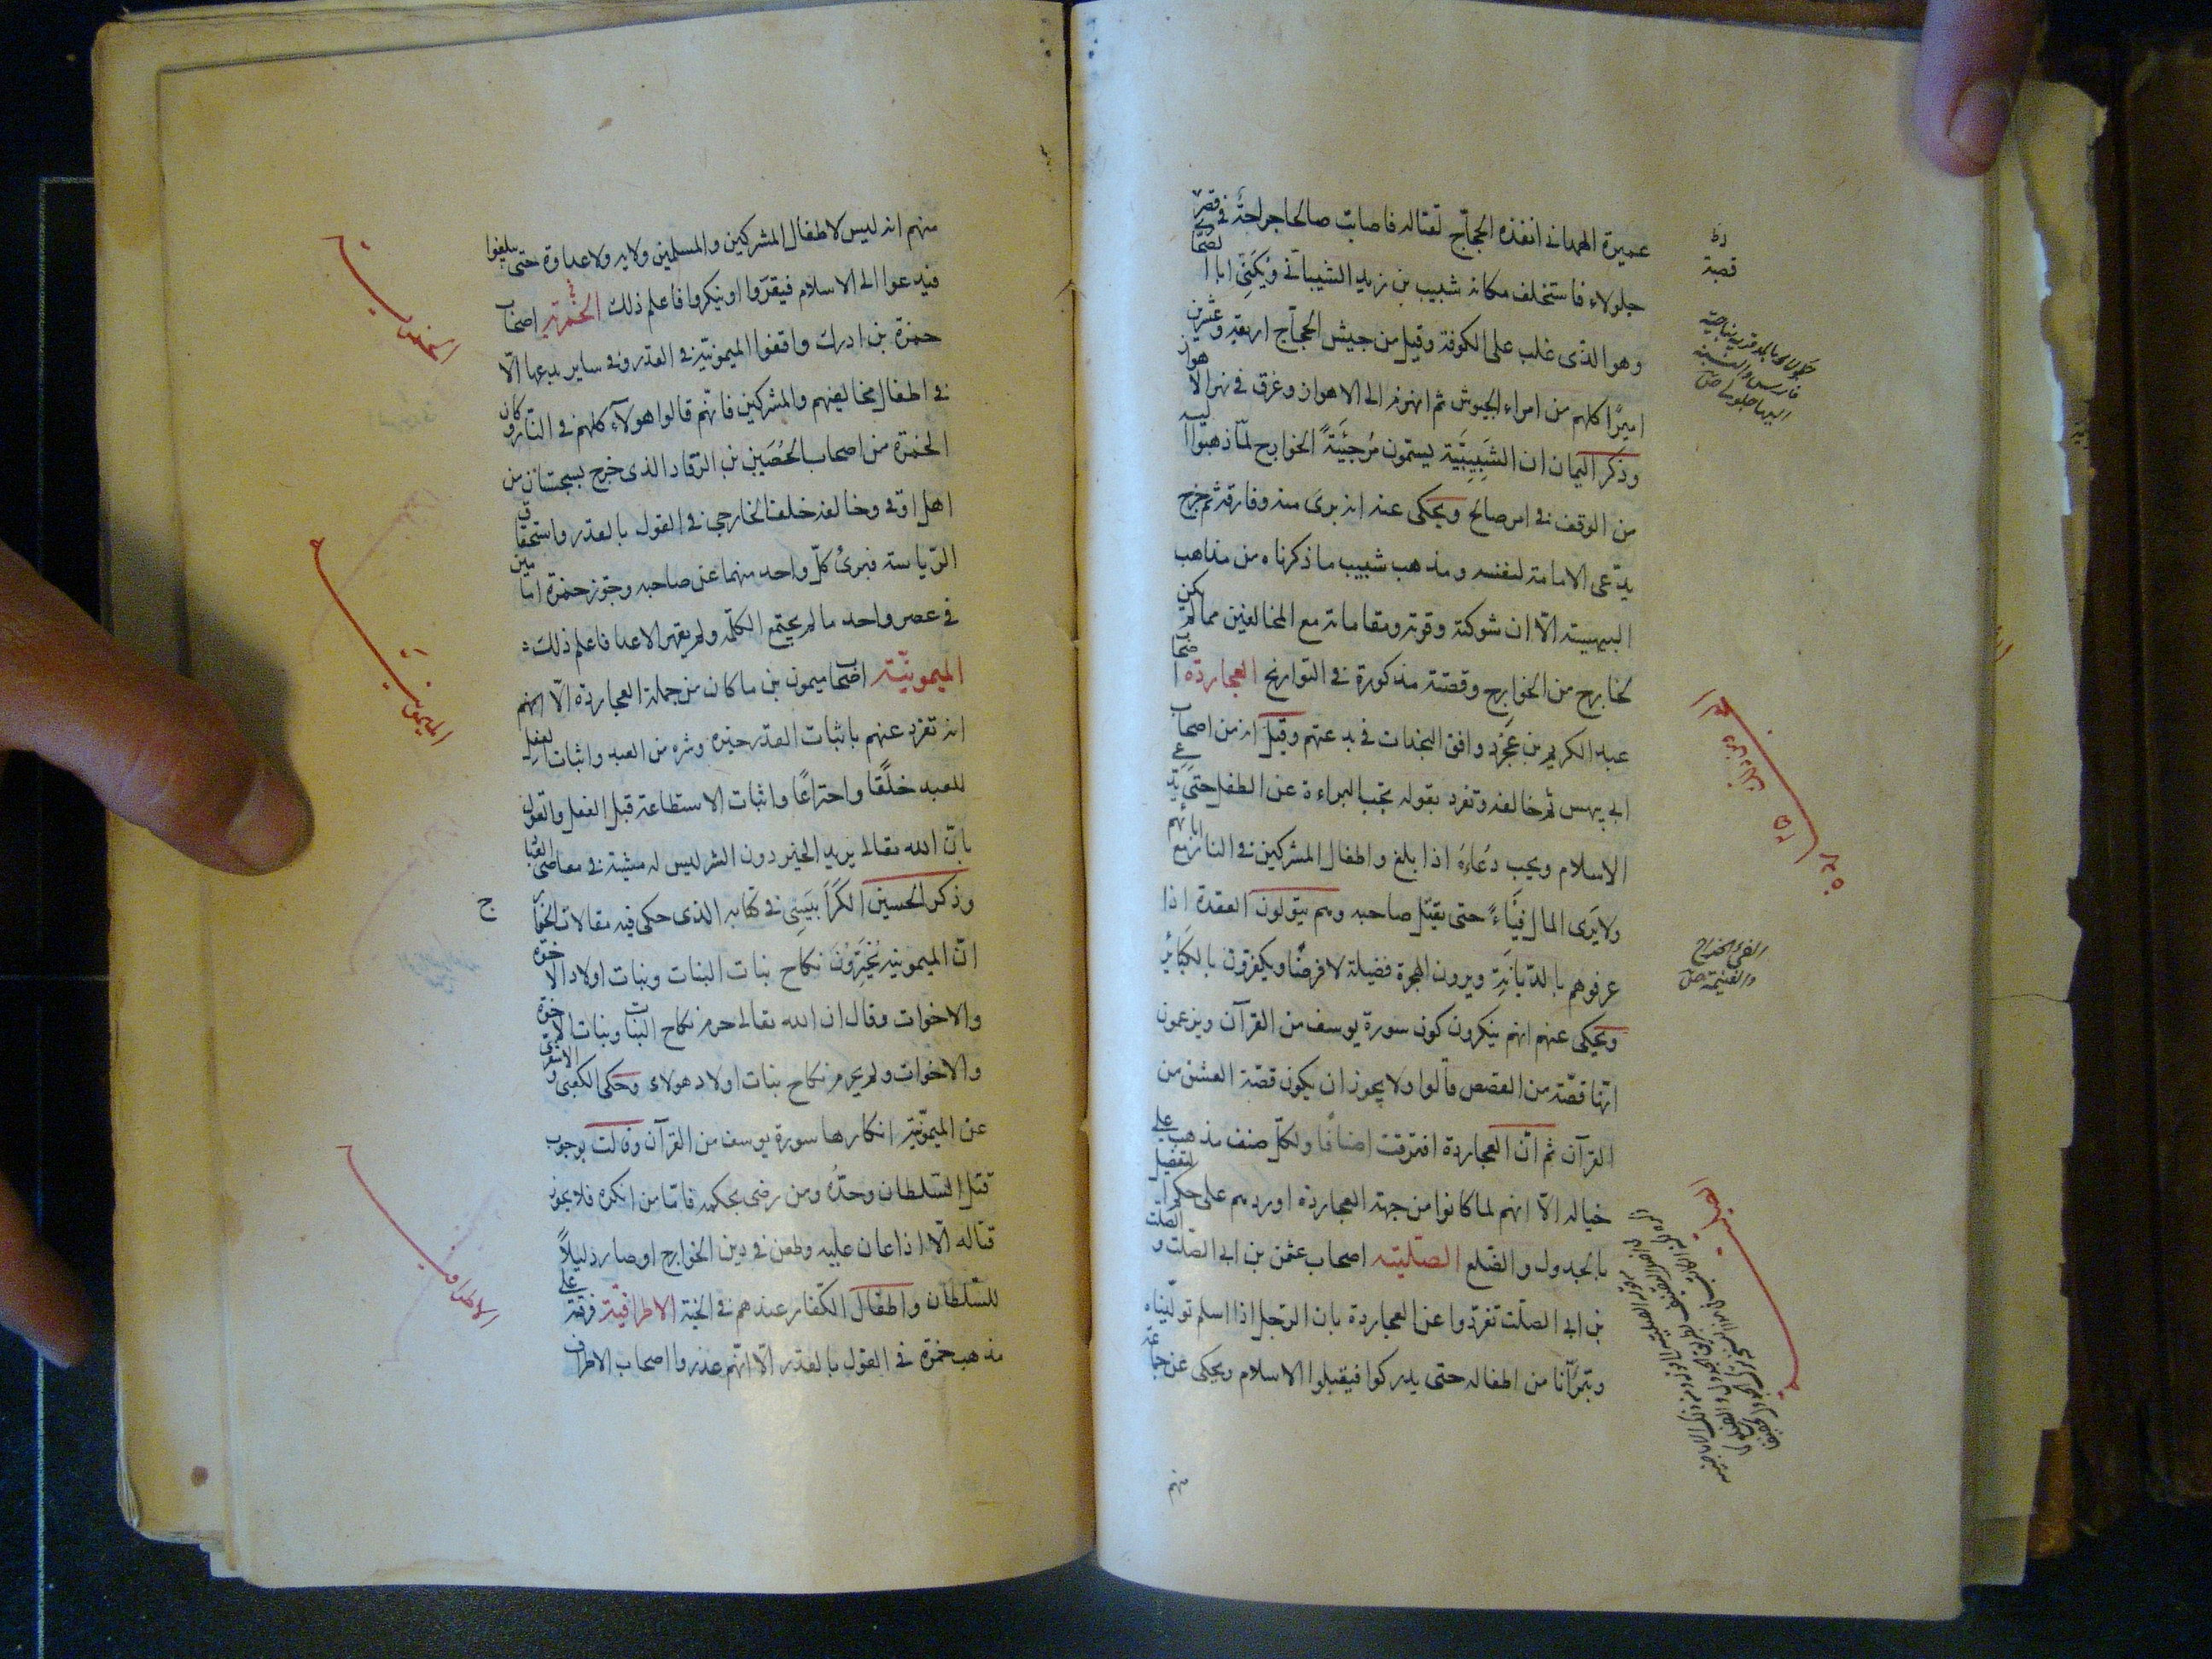 عميرة الهمدانى انفذه الحجاج لقتاله فاصابت صالحا جراحة فى قصر
جلولاء فاستخلف مكانه شبيب بن زيد الشيبانى ويكنى ابا الصحا
وهو الذى غلب على الكوفة وقتل من جيش الحجاج اربعة وعشرين
اميرًا كلهم من امراء الجيوش ثم انهزم الى الاهواز وغرق فى نهر الاهواز
وذكر اليمان ان الشبيبية يسمون مرجئة الخوارج لما ذهبوا اليه
من الوقف فى امر صالح ويحكى عنه انه برئ منه وفارقه ثم خرج
يدعى الامامة لنفسه ومذهب شبيب ما ذكرناه من مذاهب
البيهسية الا ان شوكته وقوته ومقاماته مع المخالفين مما لم يكن
لخارج من الخوارج وقصته مذكورة فى التواريخ العجاردة اصحاب
عبد الكريم بن عجرد وافق النجدات فى بدعتهم وقيل انه من اصحاب
ابى بيهس ثم خالفه وتفرد بقوله تجب البراءة عن الطفل حتى يدعى
الاسلام ويجب دعاءه اذا بلغ واطفال المشركين فى النار مع ابائهم
ولا يرى المال فيئاء حتى يقتل صاحبه وهم يتولون القعدة اذا
عرفوهم بالديانة ويرون الهجرة فضيلة لا فرضًا ويكفرون بالكبائر
ويحكى عنهم انهم ينكرون كون سورة يوسف من القرآن ويزعمون
انها قصة من القصص قالوا ولا يجوز ان يكون قصة العشق من
القرآن ثم ان العجاردة افترقت اصنافا ولكل صنف مذهب على
خياله الا انهم لما كانوا من جهة العجاردة اوردهم على حكم التفصيل
بالجدول والضلع الصلتية اصحاب عثمن بن ابى الصلت و الصلت
بن ابى الصلت تفردوا عن العجاردة بان الرجل اذا اسلم توليناه
وتبرأنا من اطفاله حتى يدركوا فيقبلوا الاسلام ويحكى عن جماعة
قصبة
الفئ الخراج
والغنيمة ص
منهم انه ليس لاطفال المشركين والمسلمين ولاية ولا عداوة حتى يبلغوا
فيدعوا الى الاسلام فيقروا او ينكروا فاعلم ذلك الحمزية اصحاب
حمزة بن ادرك وافقوا الميمونية فى القدر وفى ساير بدعها الا
فى اطفال مخالفيهم والمشركين فانهم قالوا هولآء كلهم فى النار وكان
الحمزة من اصحاب الحصين بن الرقاد الذى خرج بسجستان من
اهل اوق وخالفه خلف الخارجى فى القول بالقدر واستحقاق
الرياسة فبرئ كل واحد منهما عن صاحبه وجوز حمزة امامين
فى عصر واحد ما لم يجتمع الكلمة ولم يقهر الاعدا فاعلم ذلك
الميمونية اصحاب ميمون بن ما كان من جملة العجاردة الا انهم
انه تفرد عنهم باثبات القدر خيره وشره من العبد واثبات الفعل
للعبد خلقًا واختراعًا واثبات الاستطاعة قبل الفعل والقول
بان الله تعالى يريد الخير دون الشر ليس له مشية فى معاصى العباد
وذكر الحسين الكرابيسى فى كتابه الذى حكى فيه مقالات الخوارج
ان الميمونية يجيزون نكاح بنات البنات وبنات اولاد الاخوة
والاخوات وقال ان الله تعالى حرم نكاح البنات وبنات الاخوة
والاخوات ولم يحرم نكاح بنات اولاد هولاء وحكى الكعبى والاشعرى
عن الميمونية انكارها سورة يوسف من القرآن وقالت بوجوب
قتل السلطان وحده ومن رضى بحكمه فاما من انكره فلا يجوز
قتاله الا اذا عان عليه وطعن فى دين الخوارج او صار دليلاً
للسلطان واطفال الكفار عندهم فى الجنة الاطرافية فرقة على
مذهب حمزة فى القول بالقدر الا انهم عذروا اصحاب الاطراف
الحمزية
الميمونية
ج
الاطرافية